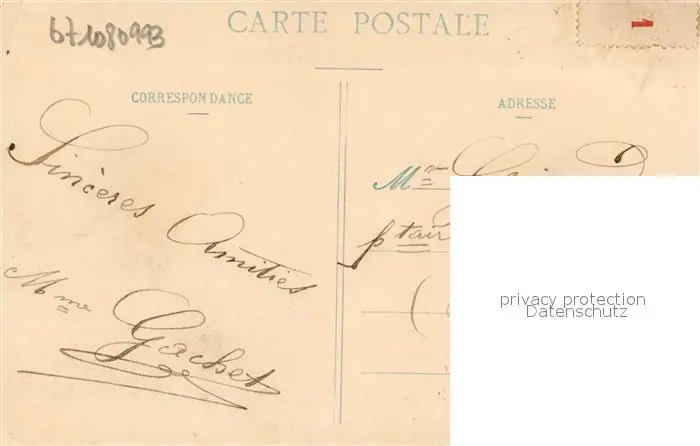 671080993
CARTE POSTALE
1
CORRESPONDANCE
ADRESSE
Sincères
Amitiés
Mme Gachet
Mme
ptaire
privacy protection
Datenschutz